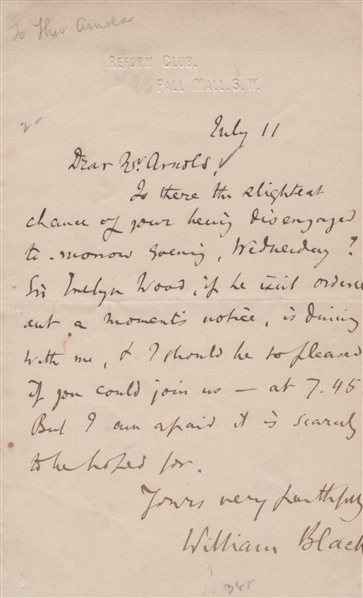 To Thos. Arnold
REFORM CLUB.
PALL MALL. S. W.
2-
July 11
Dear Mr. Arnold,
Is there the slightest
chance of your being disengaged
to-morrow evening, Wednesday?
Sir Evelyn Wood, if he isn't ordered
out a moment's notice, is dining
with me, & I should be so pleased
if you could join us — at 7.45
But I am afraid it is scarcely
to be hoped for.
Yours very faithfully
William Black
385